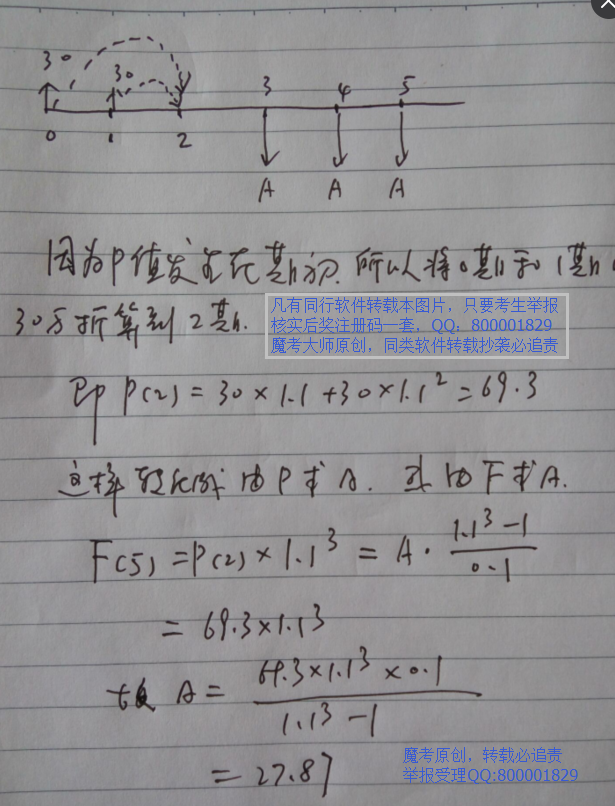 30
30
3 4 5
0 1 2
A A A
因为P值发生在期初.所以将0期和1期
30万折算到2期.
凡有同行软件转载本图片，只要考生举报
核实后奖注册码一套，QQ：800001829
魔考大师原创，同类软件转载抄袭必追责
即 P(2) = 30 × 1.1 + 30 × 1.1² = 69.3
这样 由P求A. 或由F求A.
F(5) = P(2) × 1.1³ = A · (1.1³ - 1) / 0.1
= 69.3 × 1.1³
故 A = (69.3 × 1.1³ × 0.1) / (1.1³ - 1)
= 27.87
魔考原创，转载必追责
举报受理QQ:800001829